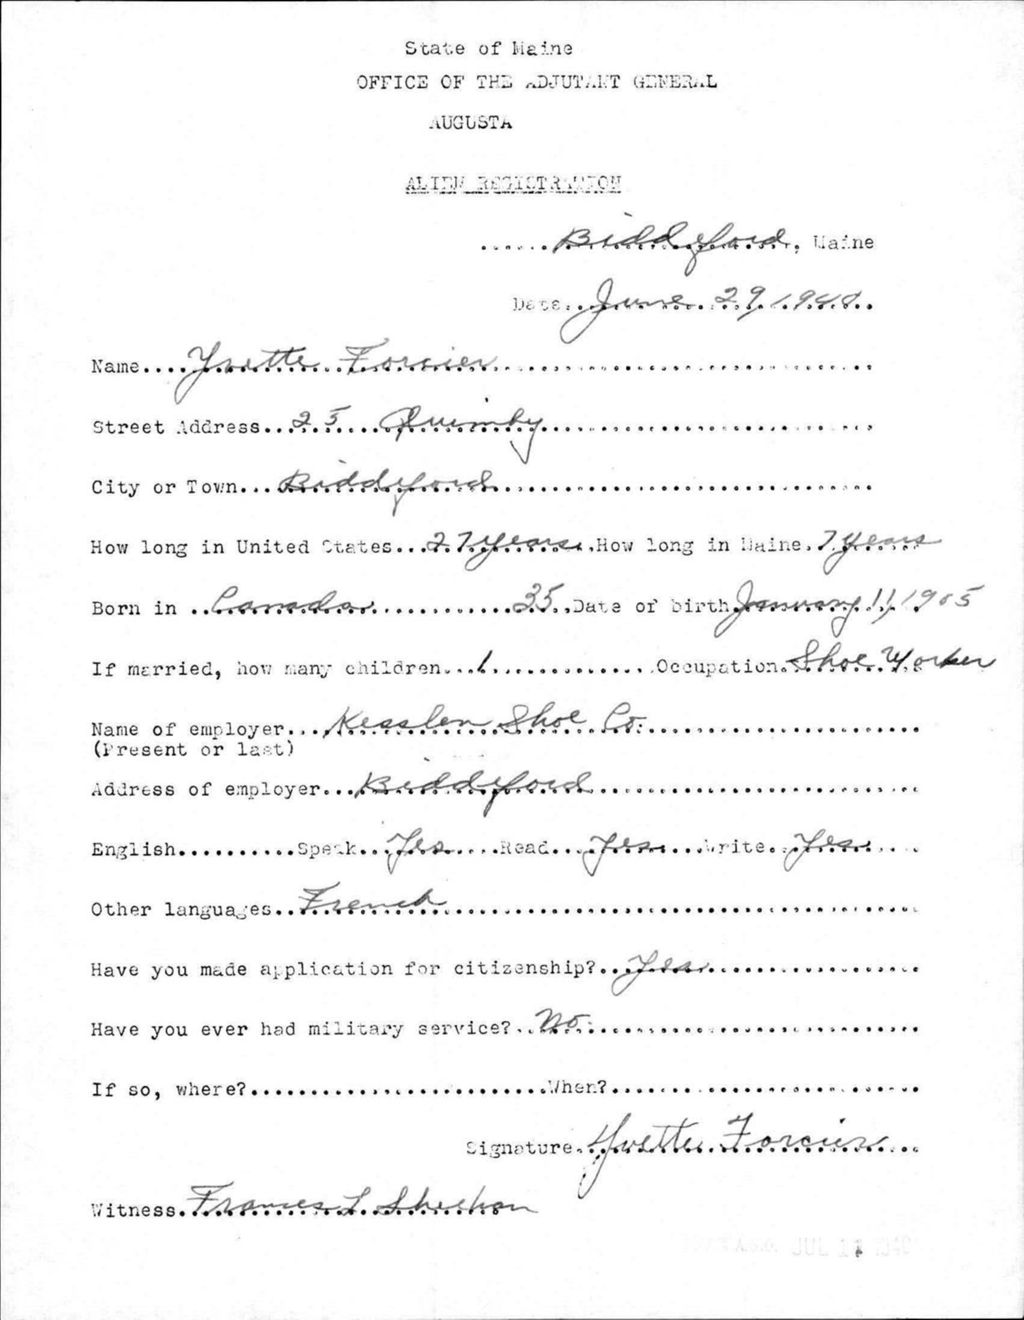 State of Maine
OFFICE OF THE ADJUTANT GENERAL
AUGUSTA
ALIEN REGISTRATION
......Biddeford, Maine
Date..June 29, 1940..
Name....Yvette Forcier
Street Address...25 Quimby
City or Town...Biddeford
How long in United States...27 years..How long in Maine.7 years
Born in ..Canada............35..Date of birth January 11, 1905
If married, how many children...1..............Occupation.Shoe Worker
Name of employer...Kesslen Shoe Co.
(Present or last)
Address of employer...Biddeford
English..........Speak...Yes....Read...Yes...Write..Yes....
Other languages..French
Have you made application for citizenship?...Yes
Have you ever had military service?..No
If so, where?........................When?........................
Signature.Yvette Forcier
Witness.Frances L. Sheehan
JUL 11 1940